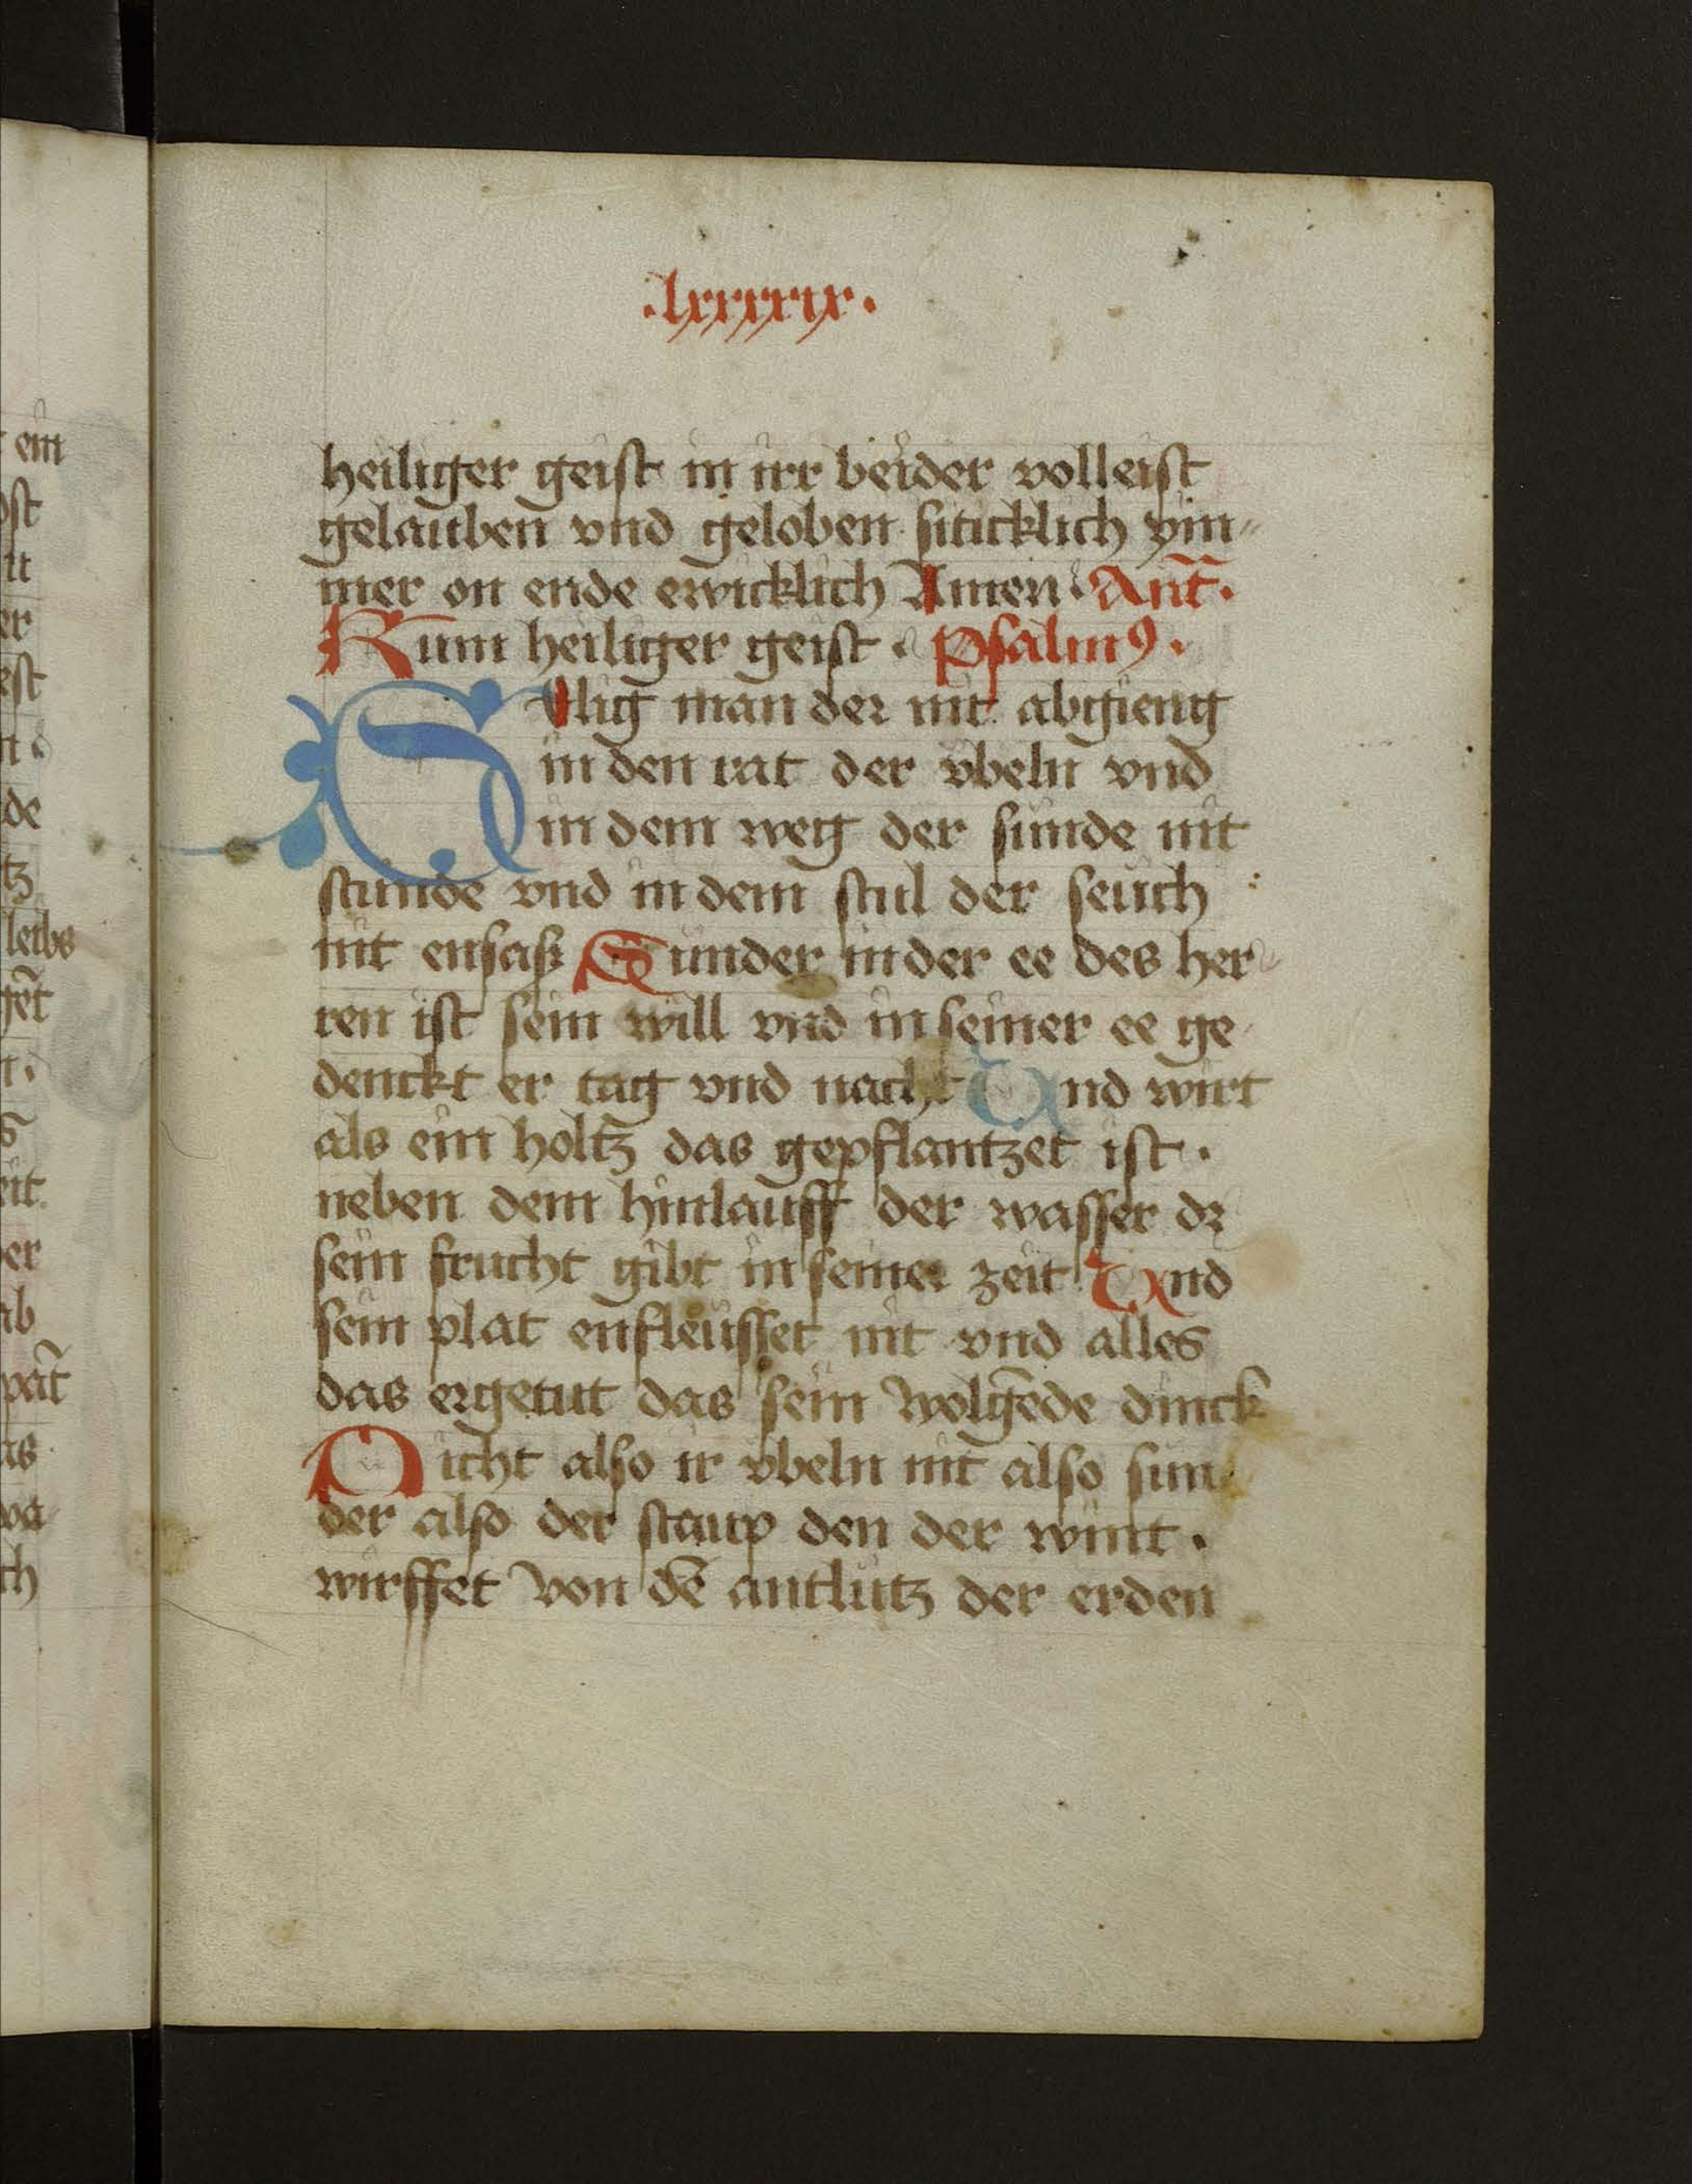 .lxxxxix.
heiliger geist in irr beider volleist
gelauben vnd geloben siticklich ym„
mer on ende ewicklich Amen. Ant̄.
Kum heiliger geist. Psalmꝰ.
SElig man der nit abgieng
in den rat der vbeln vnd
in dem weg der sunde nit
stunde vnd in dem stul der seuch
nit ensaß Sunder in der ee des her„
ren ist sein will vnd in seiner ee ge
denckt er tag vnd nacht Vnd wirt
als ein holtz das gepflantzet ist.
neben dem hinlauff der wasser dz
sein frucht gibt in seiner zeit Vnd
sein plat enfleusset nit vnd alles
das er getut das sein wolgēde dinck
Nicht also ir vbeln nit also sun
der also der staup den der wint.
wirffet von dē antlutz der erden
ein
ost
er
est
de
tz
leibs
gēt
er
ab
pat̄
as
ch